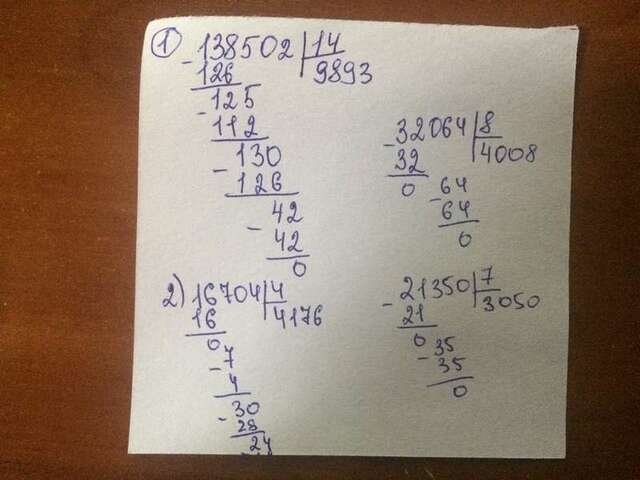 1
- 138502 | 14
126 9893
- 125
112
- 130
- 126
42
- 42
0
- 32064 | 8
32 4008
0 - 64
64
0
2) 16704 | 4
16 4176
0
- 7
4
- 30
28
24
- 21350 | 7
21 3050
0 - 35
35
0